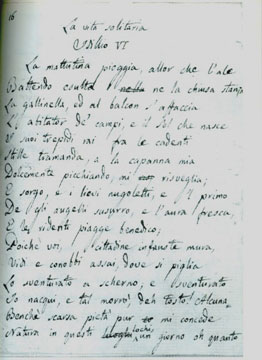 16
La vita solitaria
Idilio VI
La mattutina pioggia, allor che l'ale
Battendo esulta nella ne la chiusa stanza
La gallinella, ed al balcon s'affaccia
L'abitator de' campi, e il Sol che nasce
I suoi trepidi rai fra le cadenti
Stille tramanda, a la capanna mia
Dolcemente picchiando, mi risveglia;
E sorgo, e i lievi nugoletti, e il primo
Degli augelli susurro, e l'aura fresca,
E le ridenti piagge benedico;
Poiché voi, cittadine infauste mura,
Vidi e conobbi assai, dove si piglia
Lo sventurato a scherno, e sventurato
Io nacqui, e tal morrò deh tosto! Alcuna
Benché scarsa pietà pur mi concede
Natura in questi lochi, un giorno oh quanto